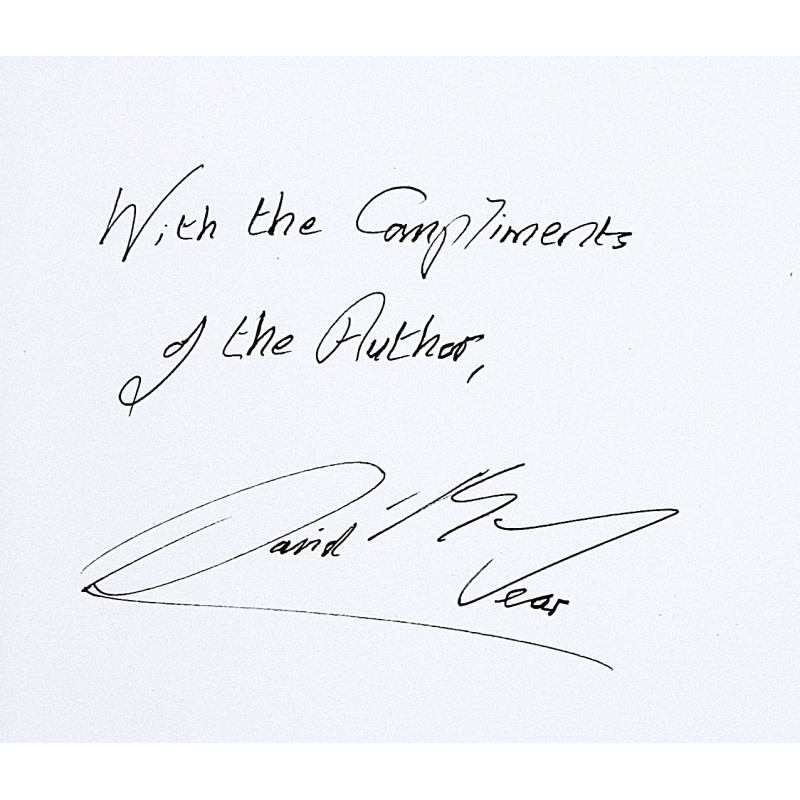 With the Compliments
of the Author,
David Vear